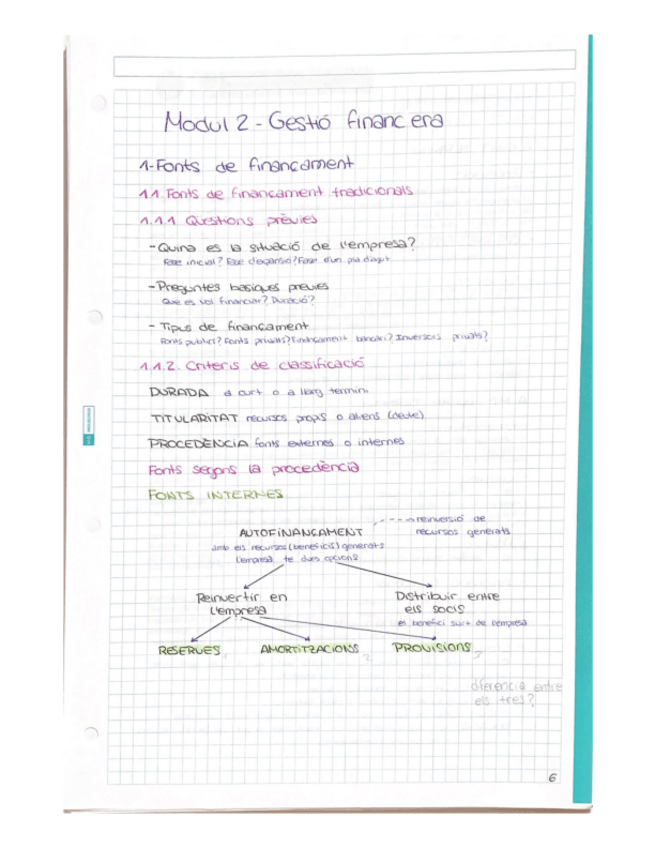 Modul 2 - Gestió financera
1-Fonts de financament
1.1. Fonts de financament tradicionals
1.1.1. Qüestions prèvies
-Quina es la situació de l'empresa?
Fase inicial? Fase d'expansió? Fase d'un pla d'ajut
-Preguntes basiques previes
Que es vol financiar? Duració?
- Tipus de financament
Fonts publics? Fonts privats? Financament bancari? Inversors privats?
1.1.2. Criteris de classificació
DURADA a curt o a llarg termini
TITULARITAT recursos propis o aliens (deute)
PROCEDÈNCIA fonts externes o internes
Fonts segons la procedència
FONTS INTERNES
AUTOFINANCAMENT
reinversió de
recursos generats
amb els recursos (beneficis) generats
l'empresa te dues opcions
Reinvertir en
l'empresa
Distribuir entre
els socis
el benefici surt de l'empresa
RESERVES 1
AMORTITZACIONS 2
PROVISIONS 3
diferencia entre
els tres?
6